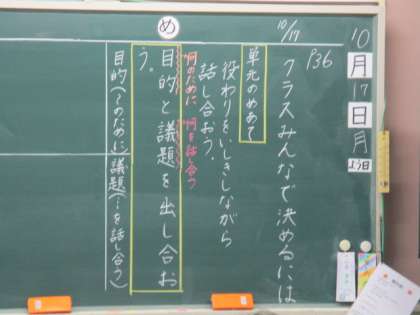 10月17日月よう日
P36
10/17
クラスみんなで決めるには
単元のめあて
役わりをいしきしながら
話し合おう。
め
何のために 何を話し合う
目的と議題を出し合お
う。
目的(〜のために)議題(…を話し合う)